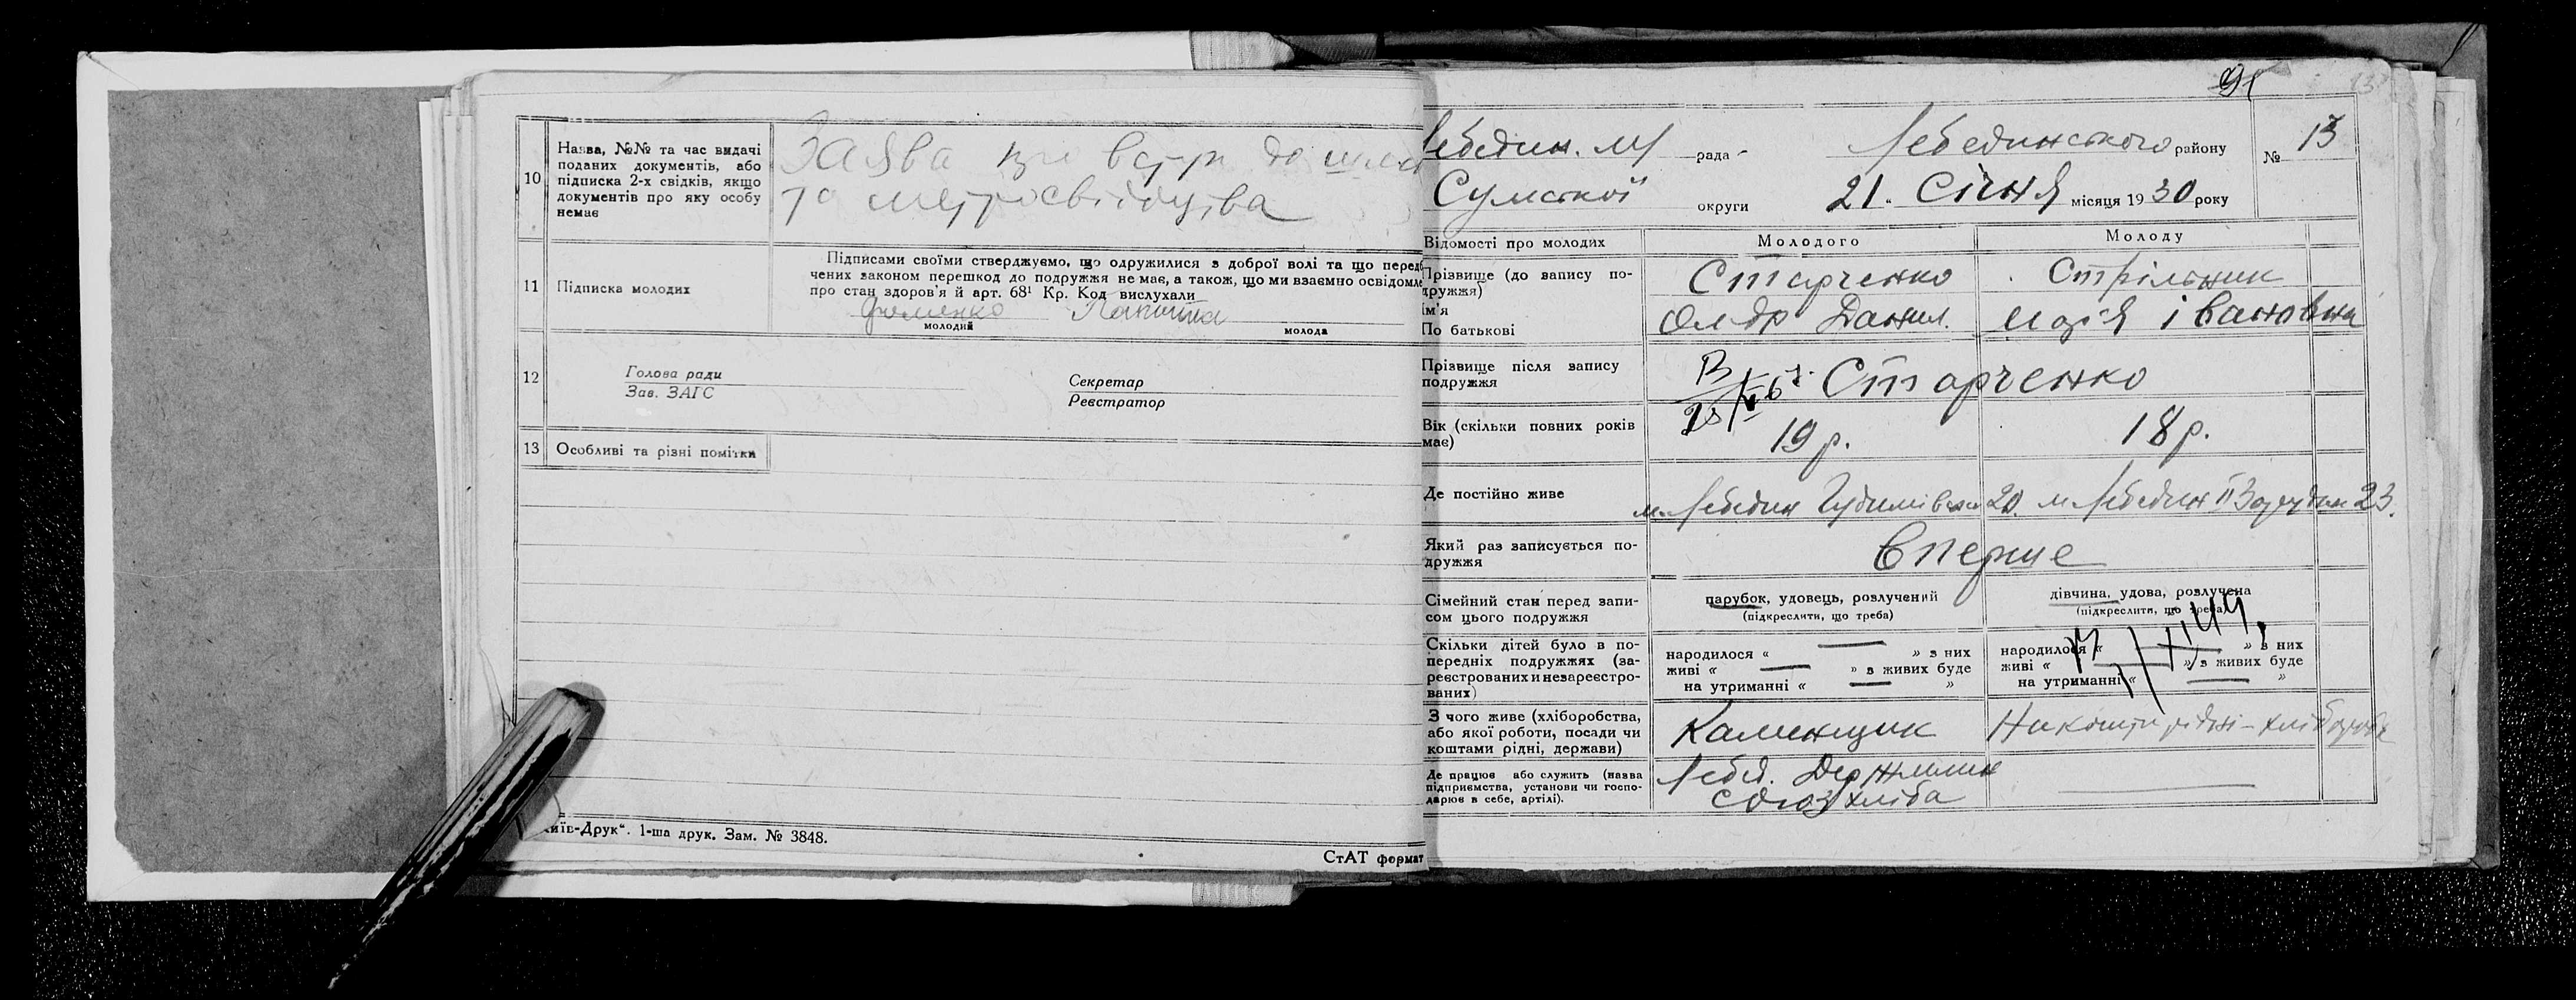 10
Назва, №№ та час видачі
поданих документів, або
підписка 2-х свідків, якщо
документів про яку особу
немає
Заява про вступ до шлю
та метросвідоцтва
11
Підписка молодих
Підписами своїми стверджуємо, що одружилися з доброї волі та що передб
чених законом перешкод до подружжя не має, а також, що ми взаємно освідомле
про стан здоров'я й арт. 68¹ Кр. Код вислухали
Фоменко
молодий
молода
12
Голова ради
Зав. ЗАГС
Секретар
Реєстратор
13
Особливі та різні помітки
иїв-Друк". 1-ша друк. Зам. № 3848.
СтАТ формат
91
13
Лебедин. М/ рада Лебединського району
№ 13
Сумської округи 21 " Січня місяця 1930 року
Відомості про молодих
Молодого
Молоду
Прізвище (до запису по-
дружжя)
Ім'я
По батькові
Старченко
Ол-др Данил.
Стрільник
Марія Івановна
Прізвище після запису
подружжя
Старченко
Вік (скільки повних років
має)
19 р.
18 р.
Де постійно живе
м. Лебедин Гудимівська 20.
м Лебедин II 23.
Який раз записується по-
дружжя
Вперше
Сімейний стан перед запи-
сом цього подружжя
парубок, удовець, розлучений
(підкреслити, що треба)
дівчина, удова, розлучена
(підкреслити, що треба)
Скільки дітей було в по-
передніх подружжях (за-
реєстрованих и незареєстро-
ваних)
народилося « — » з них
живі « — » з живих буде
на утриманні « — »
народилося « — » з них
живі « — » з живих буде
на утриманні « — »
З чого живе (хліборобства,
або якої роботи, посади чи
коштами рідні, держави)
Каменщик
На кошти рідні - хлібороба
Де працює або служить (назва
підприємства, установи чи госпо-
дарює в себе, артілі).
Лебед. Держмлин
союзхліба